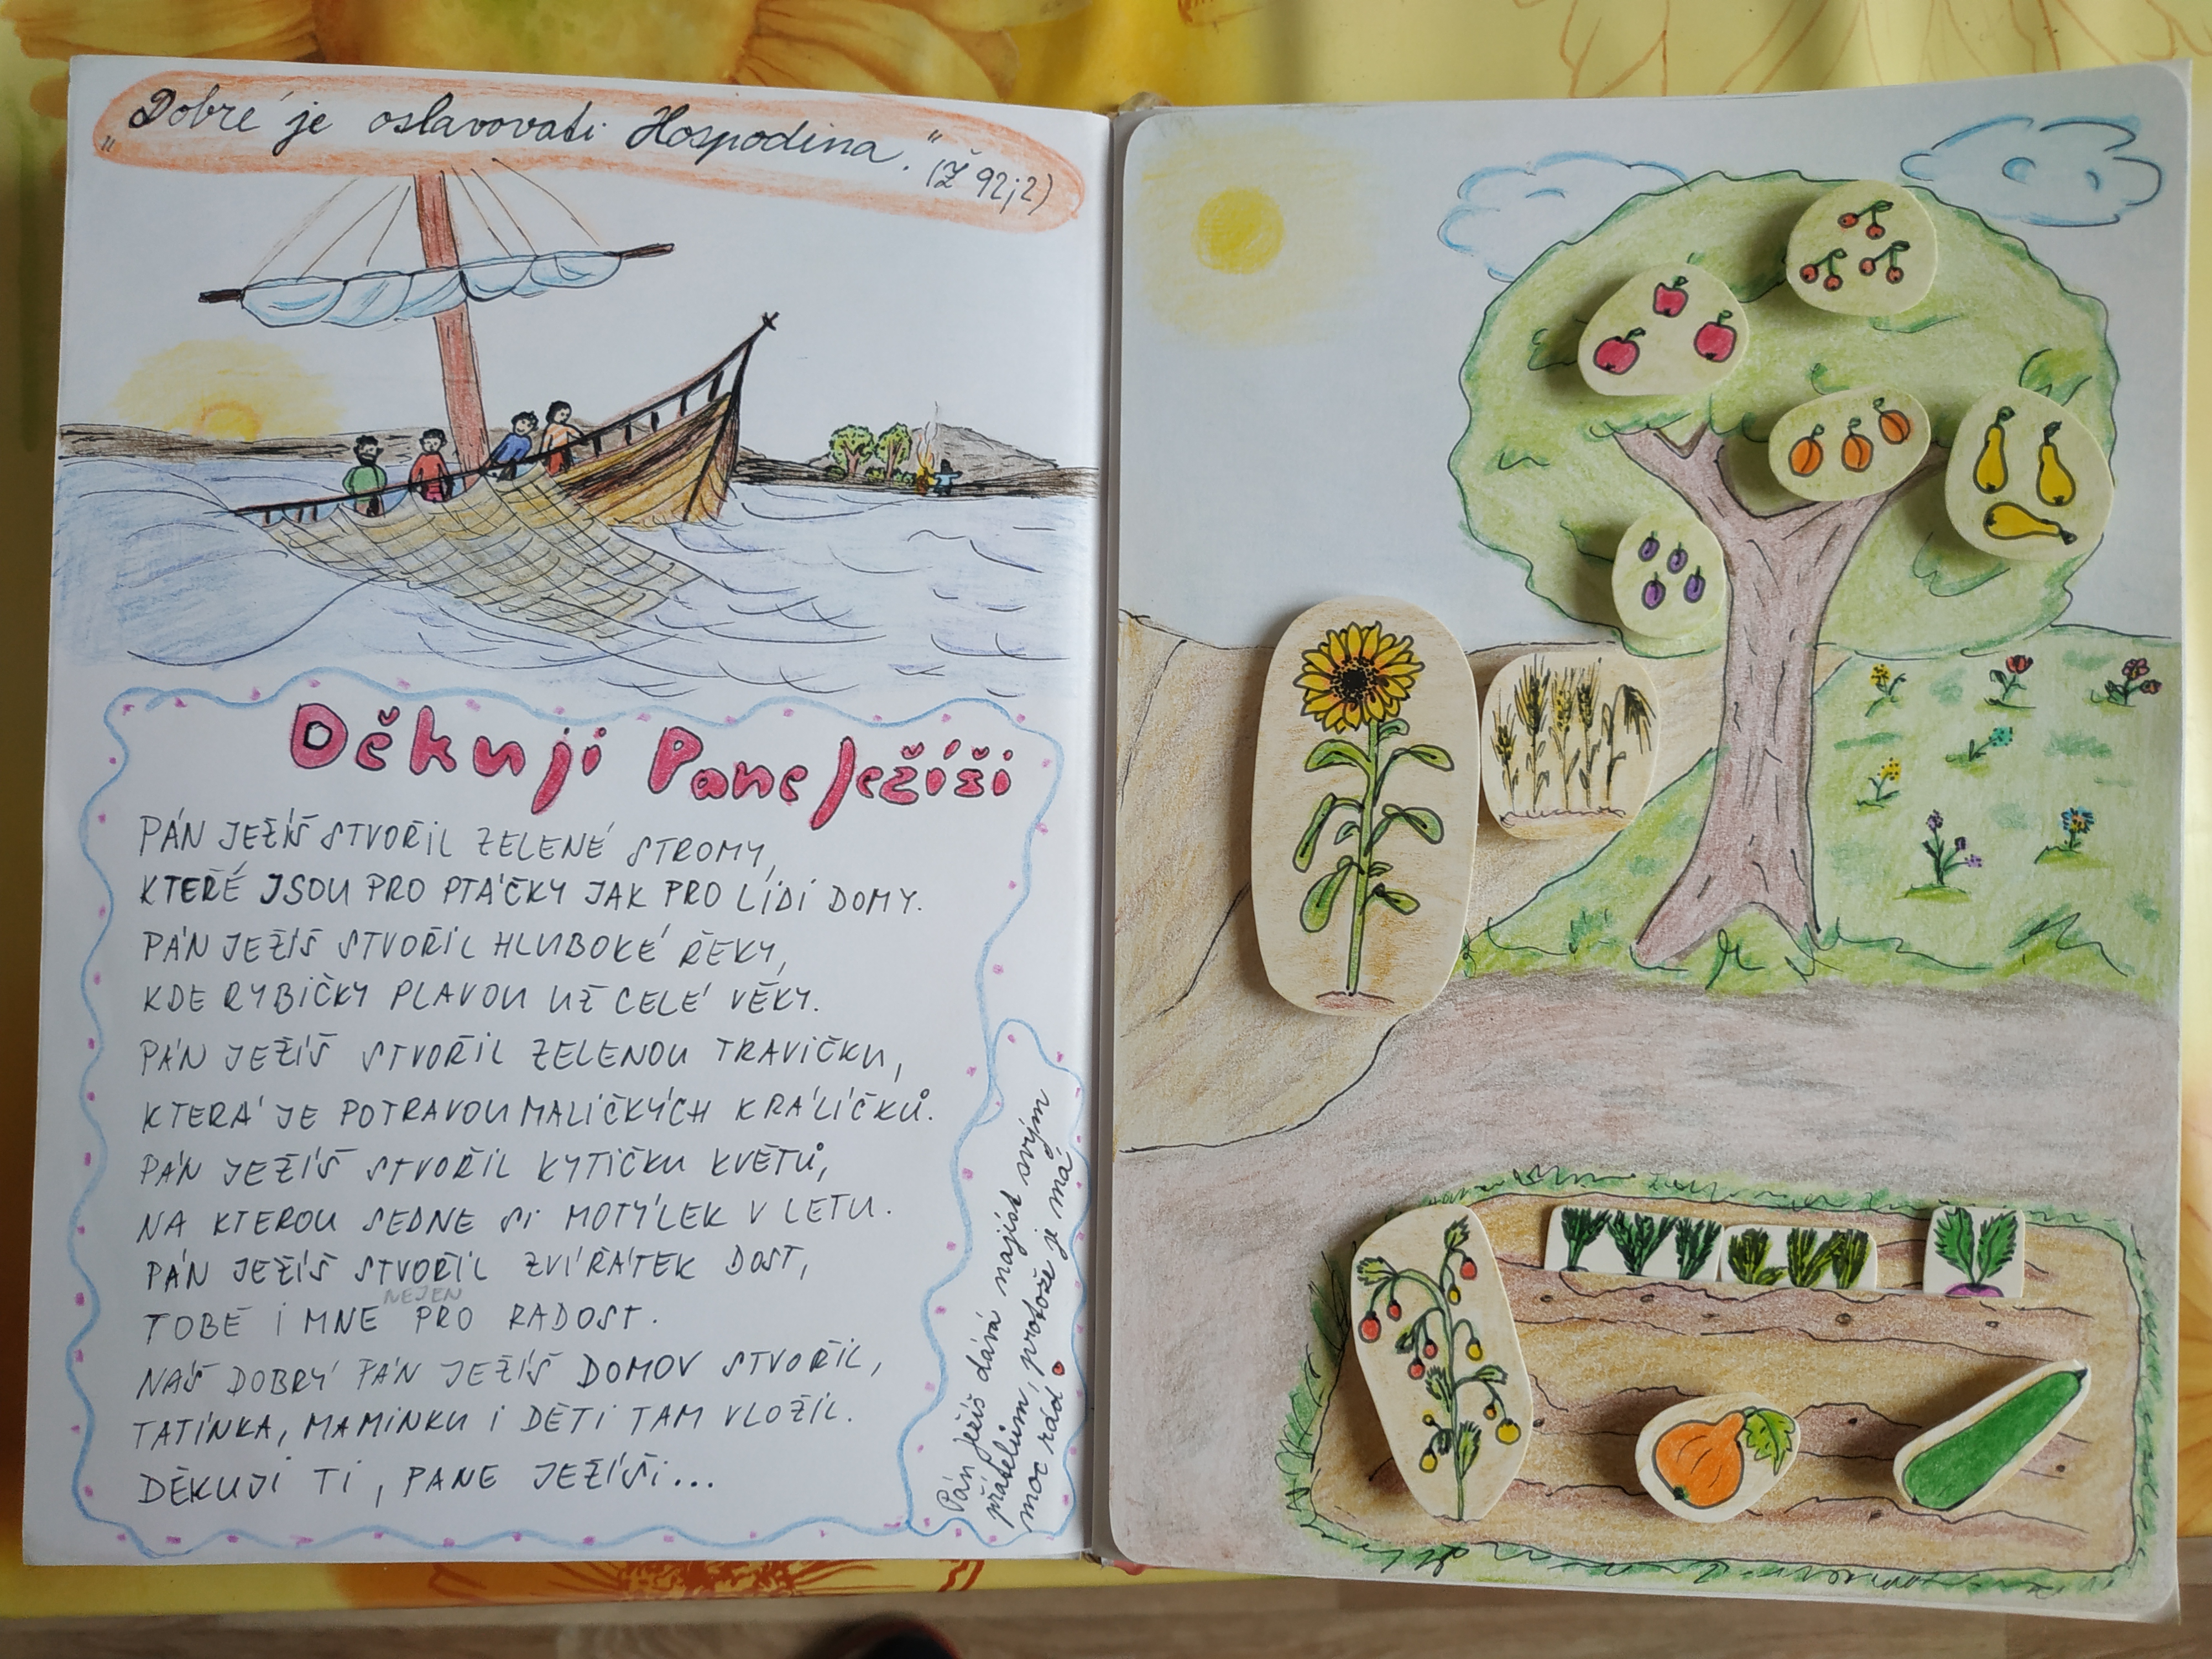 „Dobré je oslavovati Hospodina.“ (Ž 92;2)
Děkuji Pane Ježíši
PÁN JEŽÍŠ STVOŘIL ZELENÉ STROMY,
KTERÉ JSOU PRO PTÁČKY JAK PRO LIDI DOMY.
PÁN JEŽÍŠ STVOŘIL HLUBOKÉ ŘEKY,
KDE RYBIČKY PLAVOU UŽ CELÉ VĚKY.
PÁN JEŽÍŠ STVOŘIL ZELENOU TRAVIČKU,
KTERÁ JE POTRAVOU MALIČKÝCH KRÁLÍČKŮ.
PÁN JEŽÍŠ STVOŘIL KYTIČKU KVĚTŮ,
NA KTEROU SEDNE SI MOTÝLEK V LETU.
PÁN JEŽÍŠ STVOŘIL ZVÍŘÁTEK DOST,
NEJEN
TOBĚ I MNE PRO RADOST.
NÁŠ DOBRÝ PÁN JEŽÍŠ DOMOV STVOŘIL,
TATÍNKA, MAMINKU I DĚTI TAM VLOŽIL.
DĚKUJI TI, PANE JEŽÍŠI...
Pán Ježíš dává najíst svým
přátelům, protože je má
moc rád